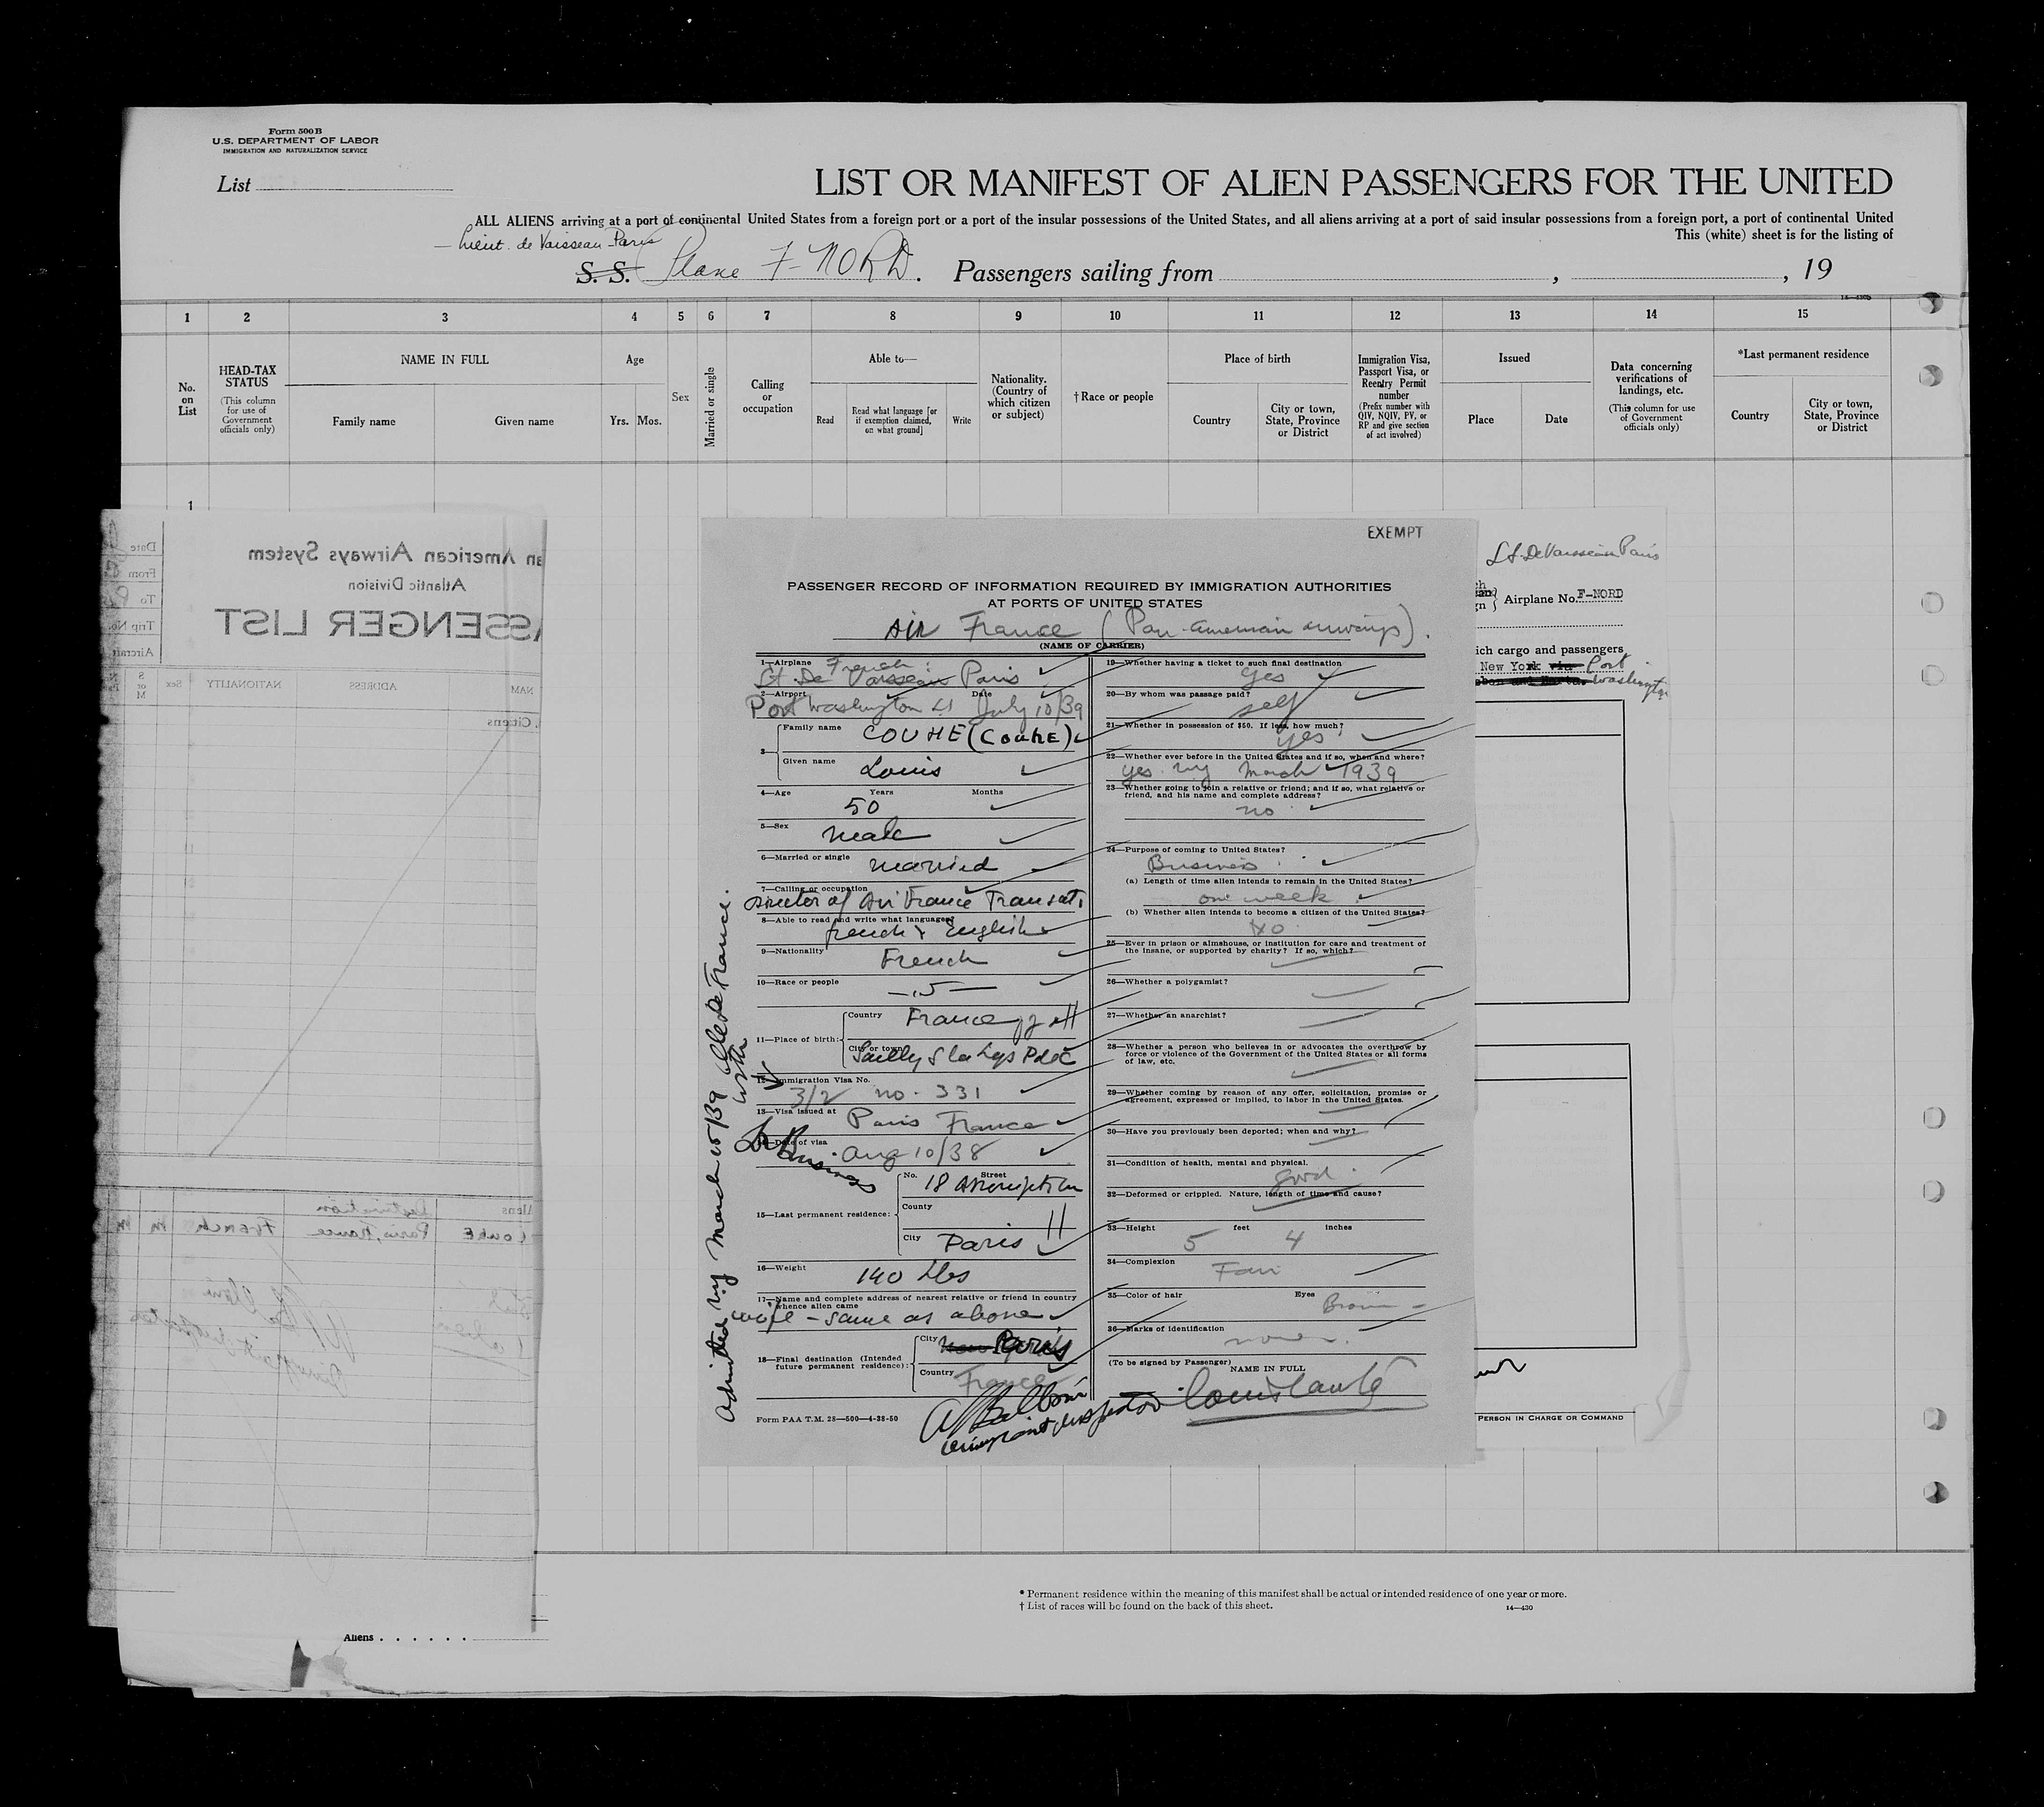 Form 500 B
U.S. DEPARTMENT OF LABOR
IMMIGRATION AND NATURALIZATION SERVICE
List
LIST OR MANIFEST OF ALIEN PASSENGERS FOR THE UNITED
ALL ALIENS arriving at a port of continental United States from a foreign port or a port of the insular possessions of the United States, and all aliens arriving at a port of said insular possessions from a foreign port, a port of continental United
This (white) sheet is for the listing of
— Lieut. de Vaisseau Paris
S. S. Plane F-NORD. Passengers sailing from , , 19
14—430b
1 2 3 4 5 6 7 8 9 10 11 12 13 14 15
No. on List
HEAD-TAX STATUS
(This column for use of Government officials only)
NAME IN FULL
Family name
Given name
Age
Yrs. Mos.
Sex
Married or single
Calling or occupation
Able to—
Read
Read what language [or if exemption claimed, on what ground]
Write
Nationality. (Country of which citizen or subject)
†Race or people
Place of birth
Country
City or town, State, Province or District
Immigration Visa, Passport Visa, or Reentry Permit number
(Prefix number with QIV, NQIV, PV, or RP and give section of act involved)
Issued
Place
Date
Data concerning verifications of landings, etc.
(This column for use of Government officials only)
*Last permanent residence
Country
City or town, State, Province or District
1
an American Airways System
Atlantic Division
ASSENGER LIST
Date
From
To
Trip No.
Aircraft
NAM
ADDRESS
NATIONALITY
Sex
S or M
. Citizens
Aliens
Destination
COUHE
Paris, France
French
M
M
Aliens . . . . . .
EXEMPT
PASSENGER RECORD OF INFORMATION REQUIRED BY IMMIGRATION AUTHORITIES
AT PORTS OF UNITED STATES
Air France (Pan-American Airways).
(NAME OF CARRIER)
1—Airplane French:
Lt. De Vaisseau Paris
2—Airport Date
Port Washington LI July 10/39
3— Family name COUHE (COUHE)
Given name Louis
4—Age Years Months
50
5—Sex male
6—Married or single married
7—Calling or occupation
Director of Air France Transat.
8—Able to read and write what language?
french & English
9—Nationality
French
10—Race or people
11—Place of birth: Country France
City or town Sailly S la Lys P de C
12—Immigration Visa No.
3/2 no. 331
13—Visa issued at Paris France
14—Date of visa Aug 10/38
15—Last permanent residence: No. Street
18 Assomption
County
City Paris
16—Weight 140 Lbs
17—Name and complete address of nearest relative or friend in country whence alien came
wife - same as above
18—Final destination (Intended future permanent residence): City Paris
Country France
Form PAA T.M. 28—500—4-38-50
Immigrant Inspector
Admitted NY March 15/39 Ile de France
19—Whether having a ticket to such final destination
yes
20—By whom was passage paid?
self
21—Whether in possession of $50. If less, how much?
yes
22—Whether ever before in the United States and if so, when and where?
yes. NY March 1939
23—Whether going to join a relative or friend; and if so, what relative or friend, and his name and complete address?
no
24—Purpose of coming to United States?
Business
(a) Length of time alien intends to remain in the United States?
one week
(b) Whether alien intends to become a citizen of the United States?
No
25—Ever in prison or almshouse, or institution for care and treatment of the insane, or supported by charity? If so, which?
26—Whether a polygamist?
27—Whether an anarchist?
28—Whether a person who believes in or advocates the overthrow by force or violence of the Government of the United States or all forms of law, etc.
29—Whether coming by reason of any offer, solicitation, promise or agreement, expressed or implied, to labor in the United States.
30—Have you previously been deported; when and why?
31—Condition of health, mental and physical.
good
32—Deformed or crippled. Nature, length of time and cause?
33—Height feet inches
5 4
34—Complexion
Fair
35—Color of hair Eyes
Brown -
36—Marks of identification
none.
(To be signed by Passenger)
NAME IN FULL
Louis Couhé
Lt. De Vaisseau Paris
Airplane No. F-NORD
ich cargo and passengers
New York via Port
Washington
PERSON IN CHARGE OR COMMAND
* Permanent residence within the meaning of this manifest shall be actual or intended residence of one year or more.
† List of races will be found on the back of this sheet.
14—430